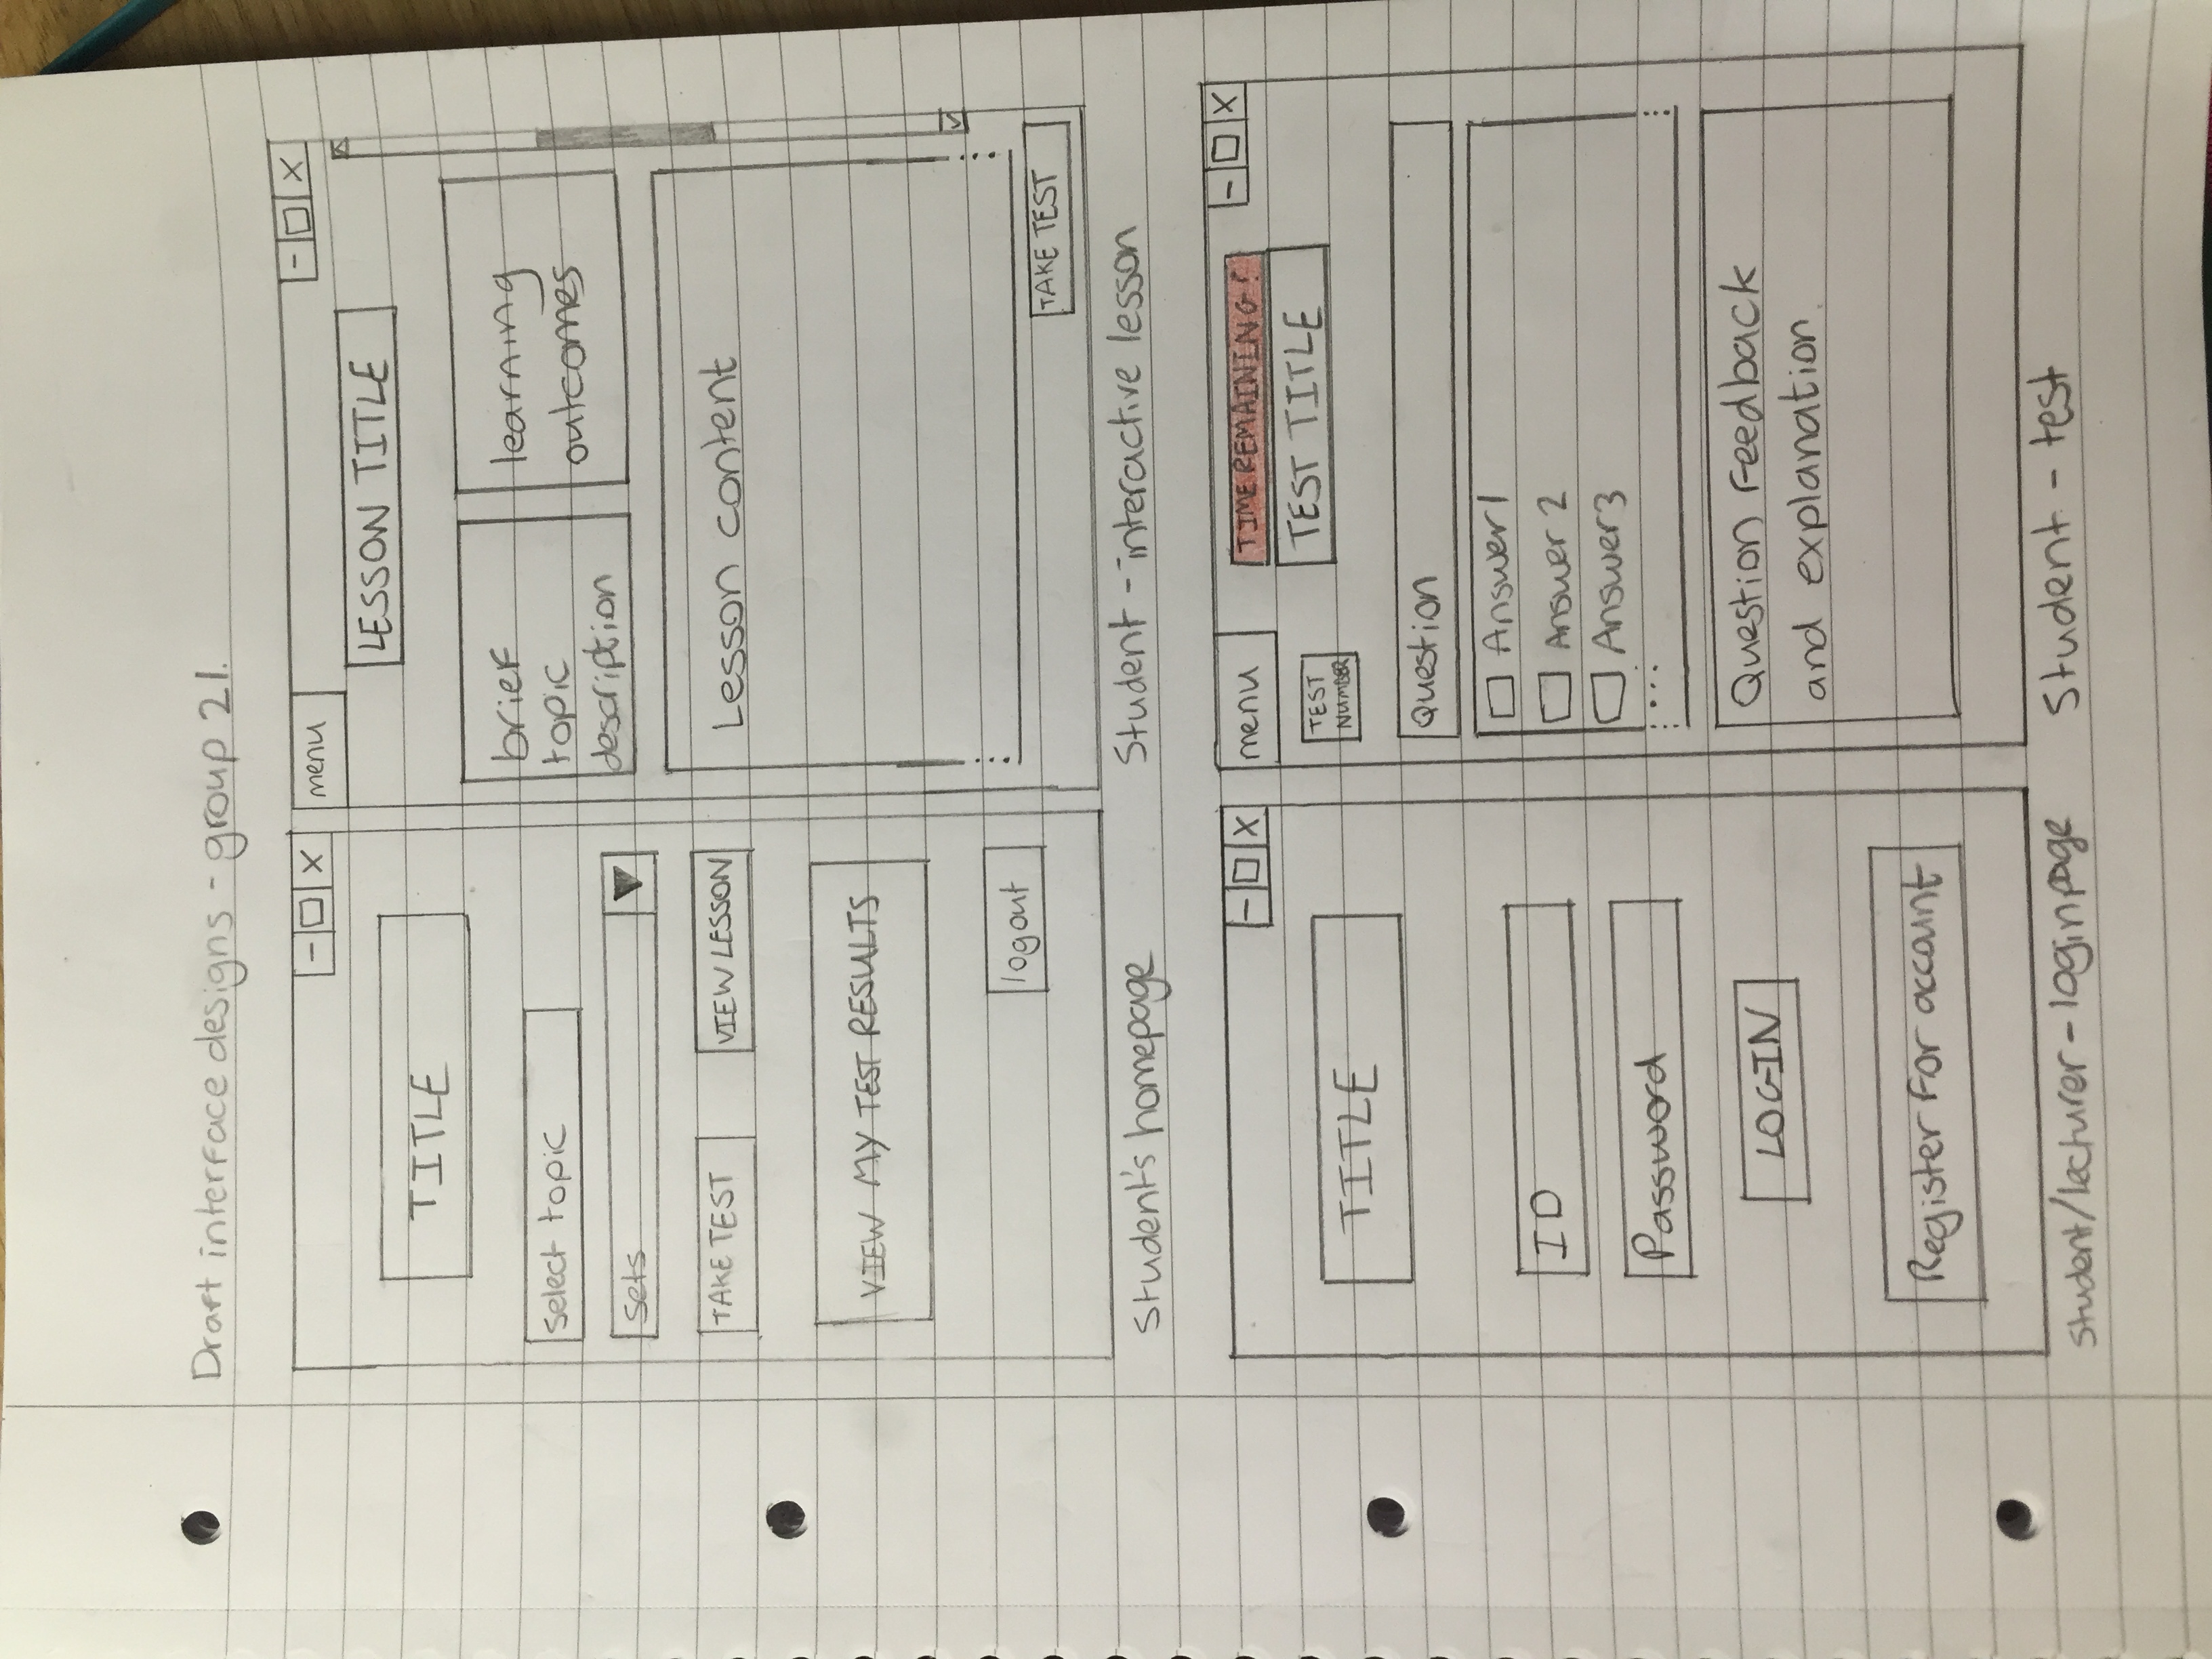 Draft interface designs - group 21.
- □ X
TITLE
Select topic
Sets
TAKE TEST
VIEW LESSON
VIEW MY TEST RESULTS
logout
Student's homepage
menu
- □ X
LESSON TITLE
brief
topic
description
learning
outcomes
Lesson content
TAKE TEST
Student - interactive lesson
- □ X
TITLE
ID
Password
LOGIN
Register for account
Student/lecturer - login page
menu
TIME REMAINING!
- □ X
TEST TITLE
TEST
NUMBER
Question
Answer 1
Answer 2
Answer 3
...
Question feedback
and explanation.
Student - test